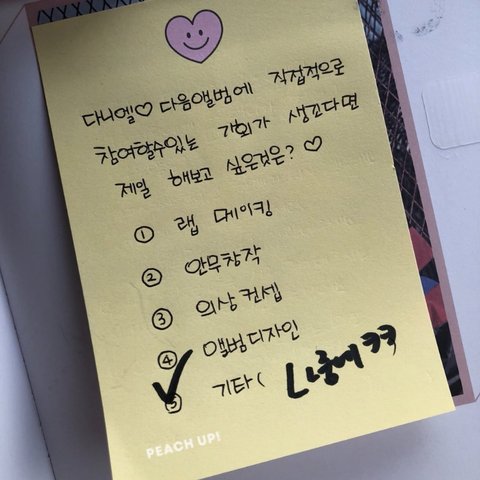 다니엘♡ 다음앨범에 직접적으로
참여할수있는 기회가 생긴다면
제일 해보고 싶은것은? ♡
① 랩 메이킹
② 안무창작
③ 의상 컨셉
④ 앨범디자인
✓⑤ 기타 ( 나중에 ㅋㅋ
PEACH UP!